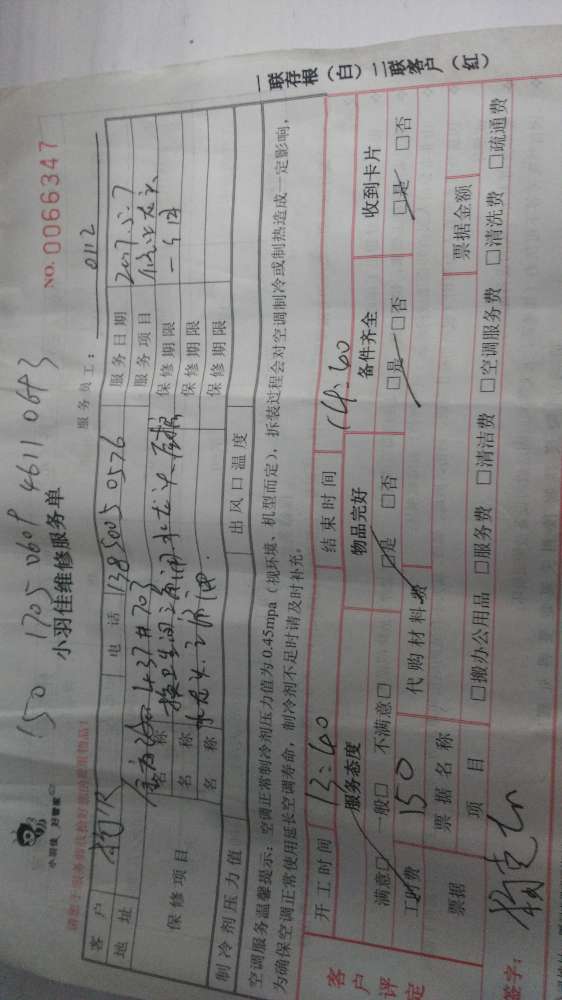 150 1705 0609 4611 0643
小羽佳 好管家
小羽佳维修服务单
NO. 0066347
服务员工: 0112
客户 电话 13850050576 服务日期 2017.5.7
地址 437#703 服务项目
保修项目 名称 换卫生间 保修期限 一个月
名称 保修期限
名称 保修期限
制冷剂压力值 出风口温度
空调服务温馨提示:空调正常制冷剂压力值为0.45mpa(视环境、机型而定),拆装过程会对空调制冷或制热造成一定影响,
为确保空调正常使用延长空调寿命,制冷剂不足时请及时补充。
一联存根(白)二联客户(红)
客户评定
开工时间 13:40 结束时间 14:60
服务态度 物品完好 备件齐全 收到卡片
满意□ 一般□ 不满意□ □是 □否 □是 □否 □是 □否
工时费 150 代购材料费
票据 票据名称 票据金额
项目 □搬办公用品 □服务费 □清洁费 □空调服务费 □清洗费 □疏通费
签字: